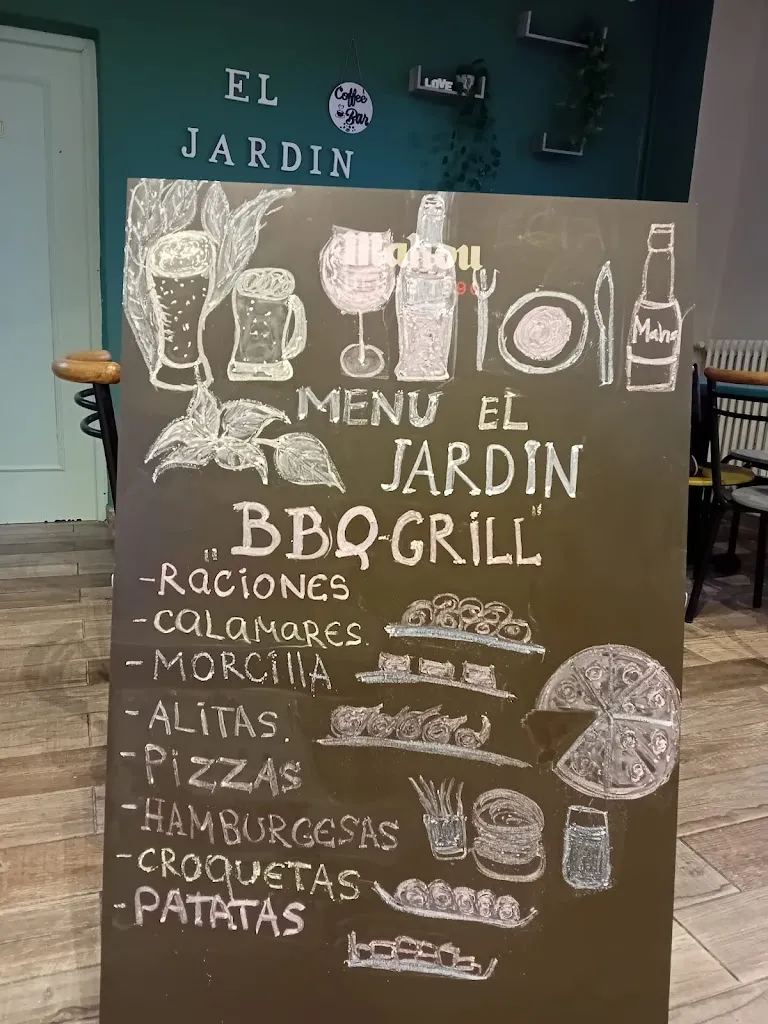 EL
JARDIN
Coffee
Bar
LOVE
Mahou
Maho
MENU EL
JARDIN
"BBQ-GRILL"
-RACIONES
-CALAMARES.
-MORCILLA
-ALITAS.
-PIZZAS
-HAMBURGESAS
-CROQUETAS
-PATATAS